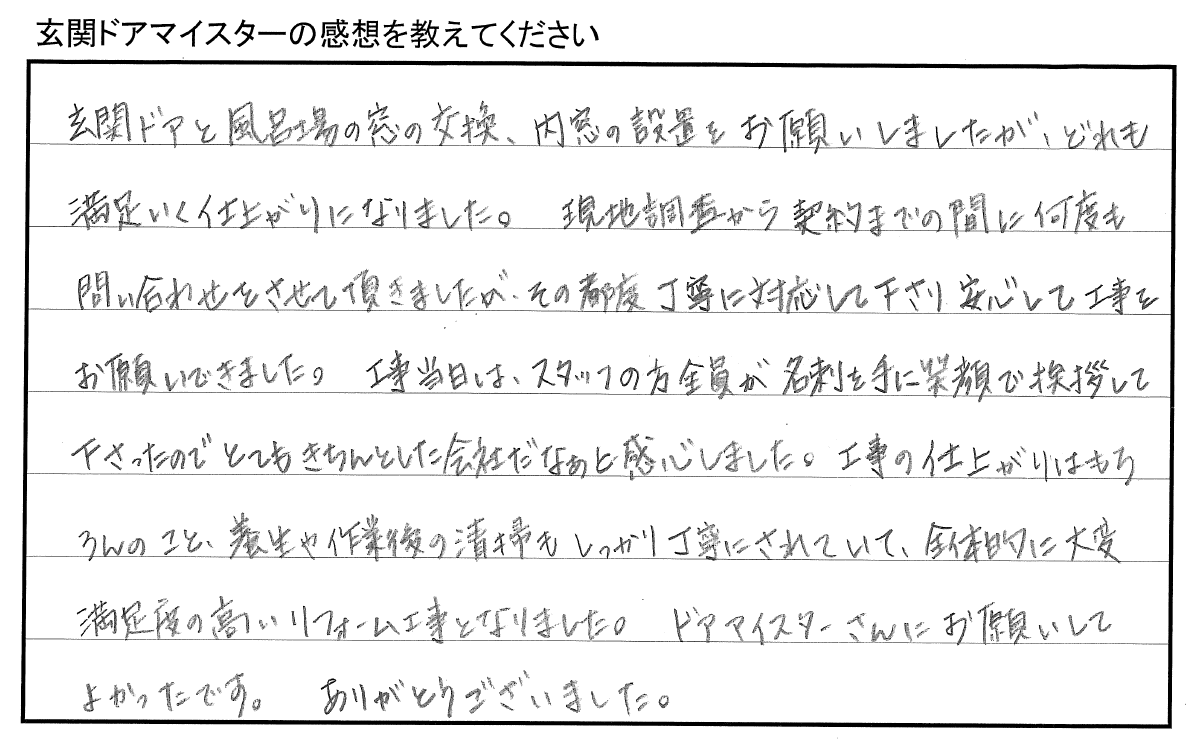 玄関ドアマイスターの感想を教えてください
玄関ドアと風呂場の窓の交換、内窓の設置をお願いしましたが、どれも
満足いく仕上がりになりました。 現地調査から契約までの間に何度も
問い合わせをさせて頂きましたが、その都度丁寧に対応して下さり安心して工事を
お願いできました。 工事当日は、スタッフの方全員が名刺を手に笑顔で挨拶して
下さったのでとてもきちんとした会社だなぁと感心しました。工事の仕上がりはもち
ろんのこと、養生や作業後の清掃もしっかり丁寧にされていて、全体的に大変
満足度の高いリフォーム工事となりました。 ドアマイスターさんにお願いして
よかったです。 ありがとうございました。